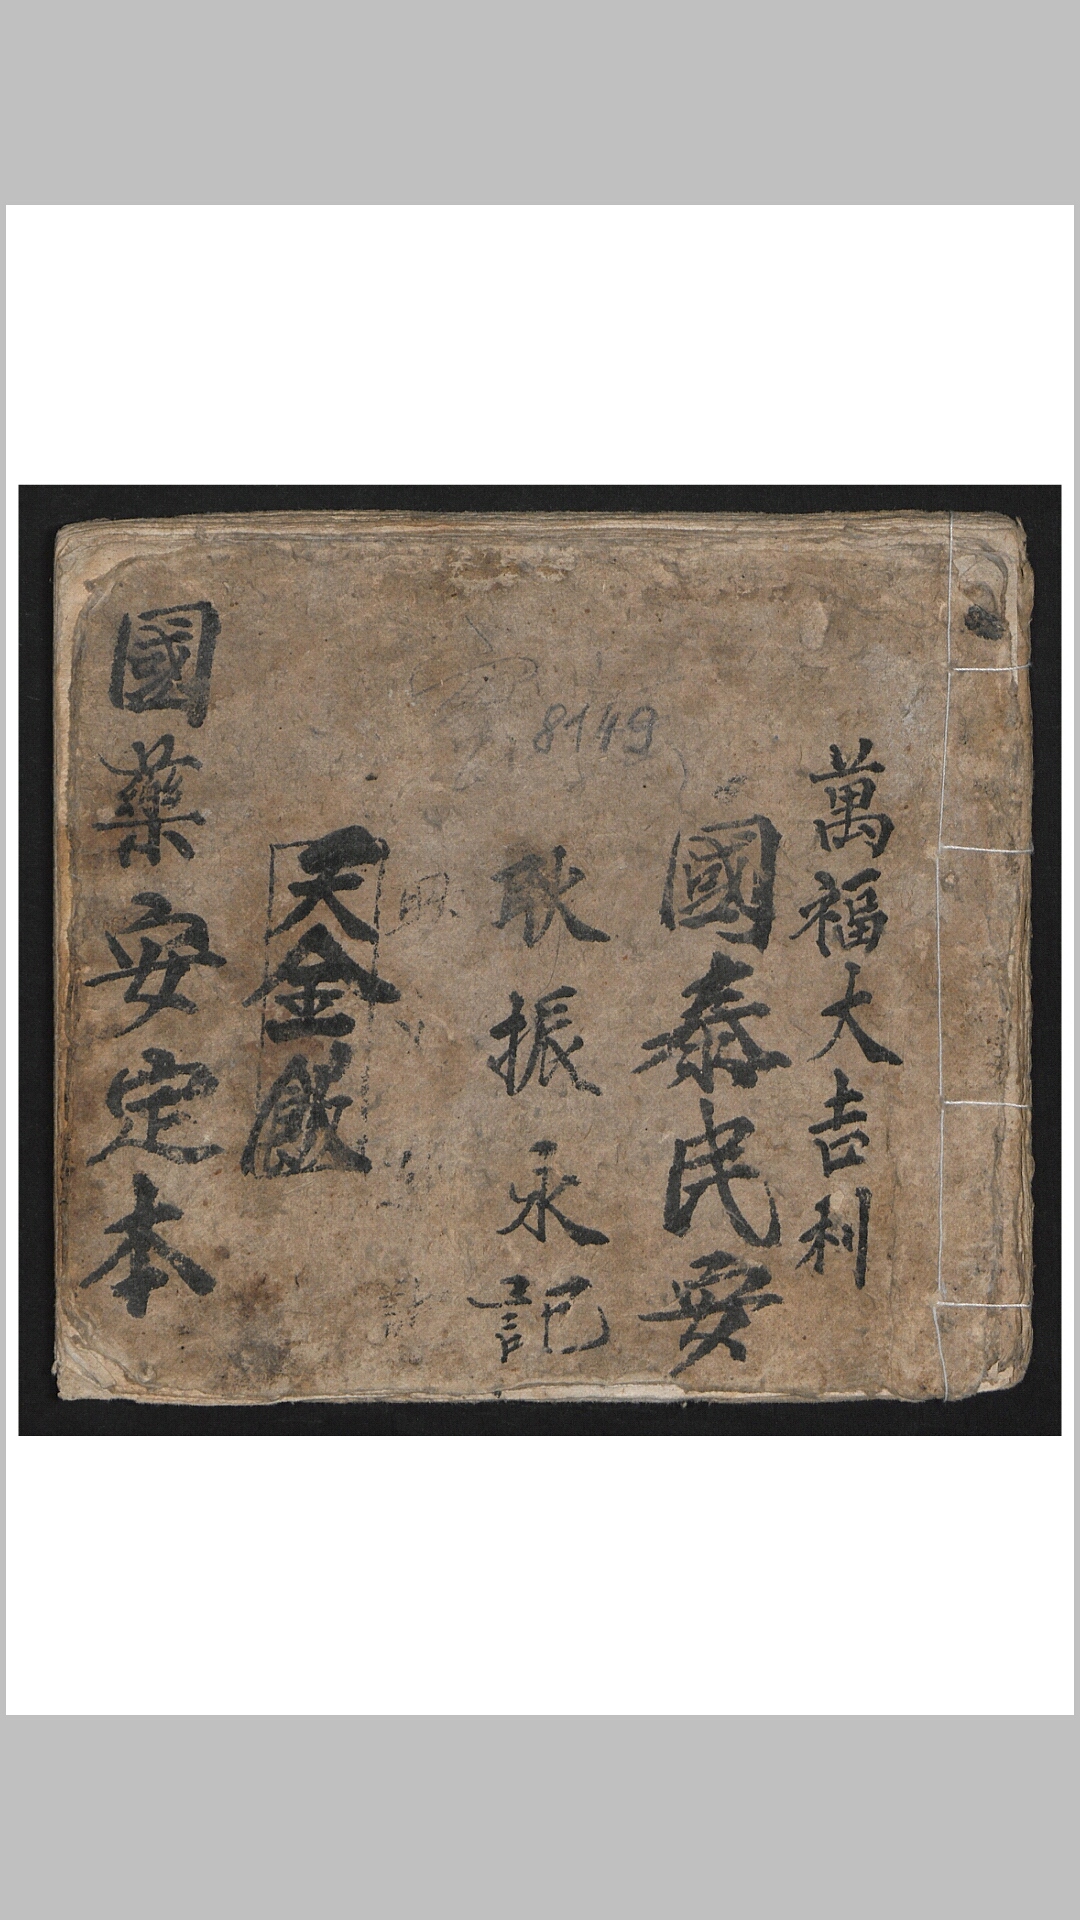 萬福大吉利
國泰民安
8149
耿振永記
天金飯
國藥安定本